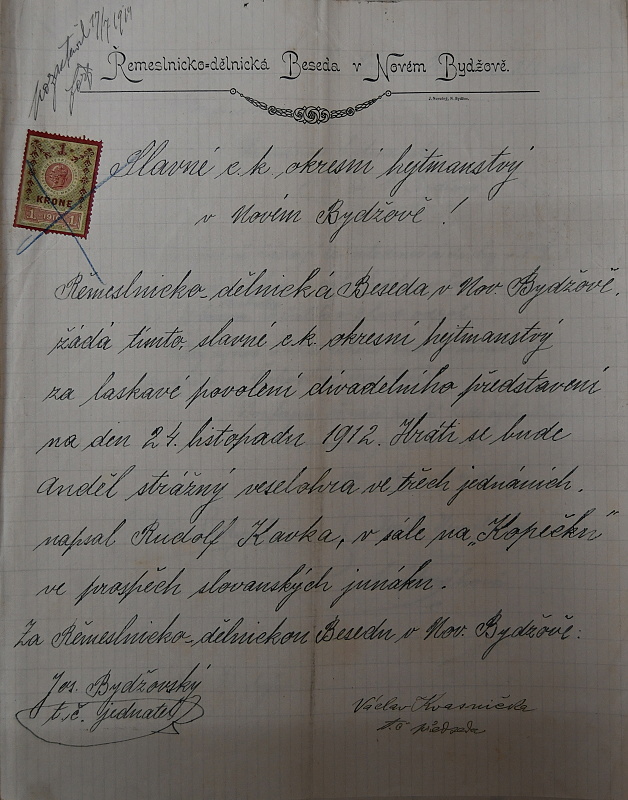 17/7 1919
Řemeslnicko-dělnická Beseda v Novém Bydžově.
J. Novotný, N. Bydžov.
1
KRONE
1 19 1
Slavné c.k. okresní hejtmanstvý
v Novém Bydžově!
Řěmeslnicko-dělnická Beseda v Nov. Bydžově,
žádá tímto, slavné c.k. okresní hejtmanstvý
za laskavé povolení divadelního představení
na den 24. listopadu 1912. Hráti se bude
Anděl strážný veselohra ve třech jednáních.
napsal Rudolf Kavka, v sále na „Kopečku"
ve prospěch slovanských junáku.
Za Řěmeslnicko-dělnickou Besedu v Nov. Bydžově:
Jos. Bydžovský
t.č. jednatel
Václav Kvasnička
t.č předseda